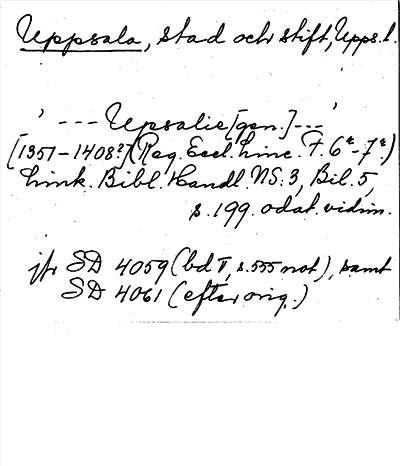 Uppsala, stad och stift, Upps. l.
' --- Upsalie [gen.] --- '
[1351-1408?] (Reg. Eccl. Linc. F. 6r-7r)
Link. Bibl. Handl. NS. 3, Bil. 5,
s. 199. odat. vidim.
jfr SD 4059 (bd V, s. 555 not), samt
SD 4061 (efter orig.)